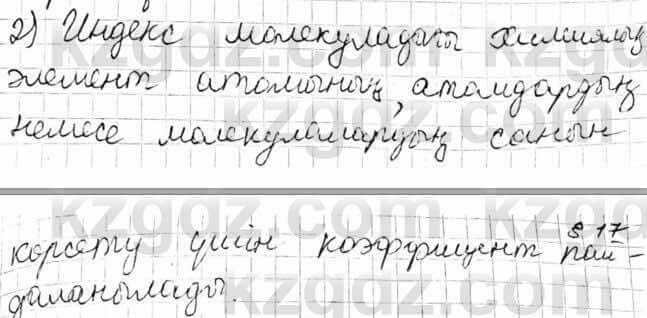 2) Индекс молекуладағы химиялық
элемент атомының, атомдардың
немесе молекулалардың санын
көрсету үшін коэффициент пай-
даланылады.